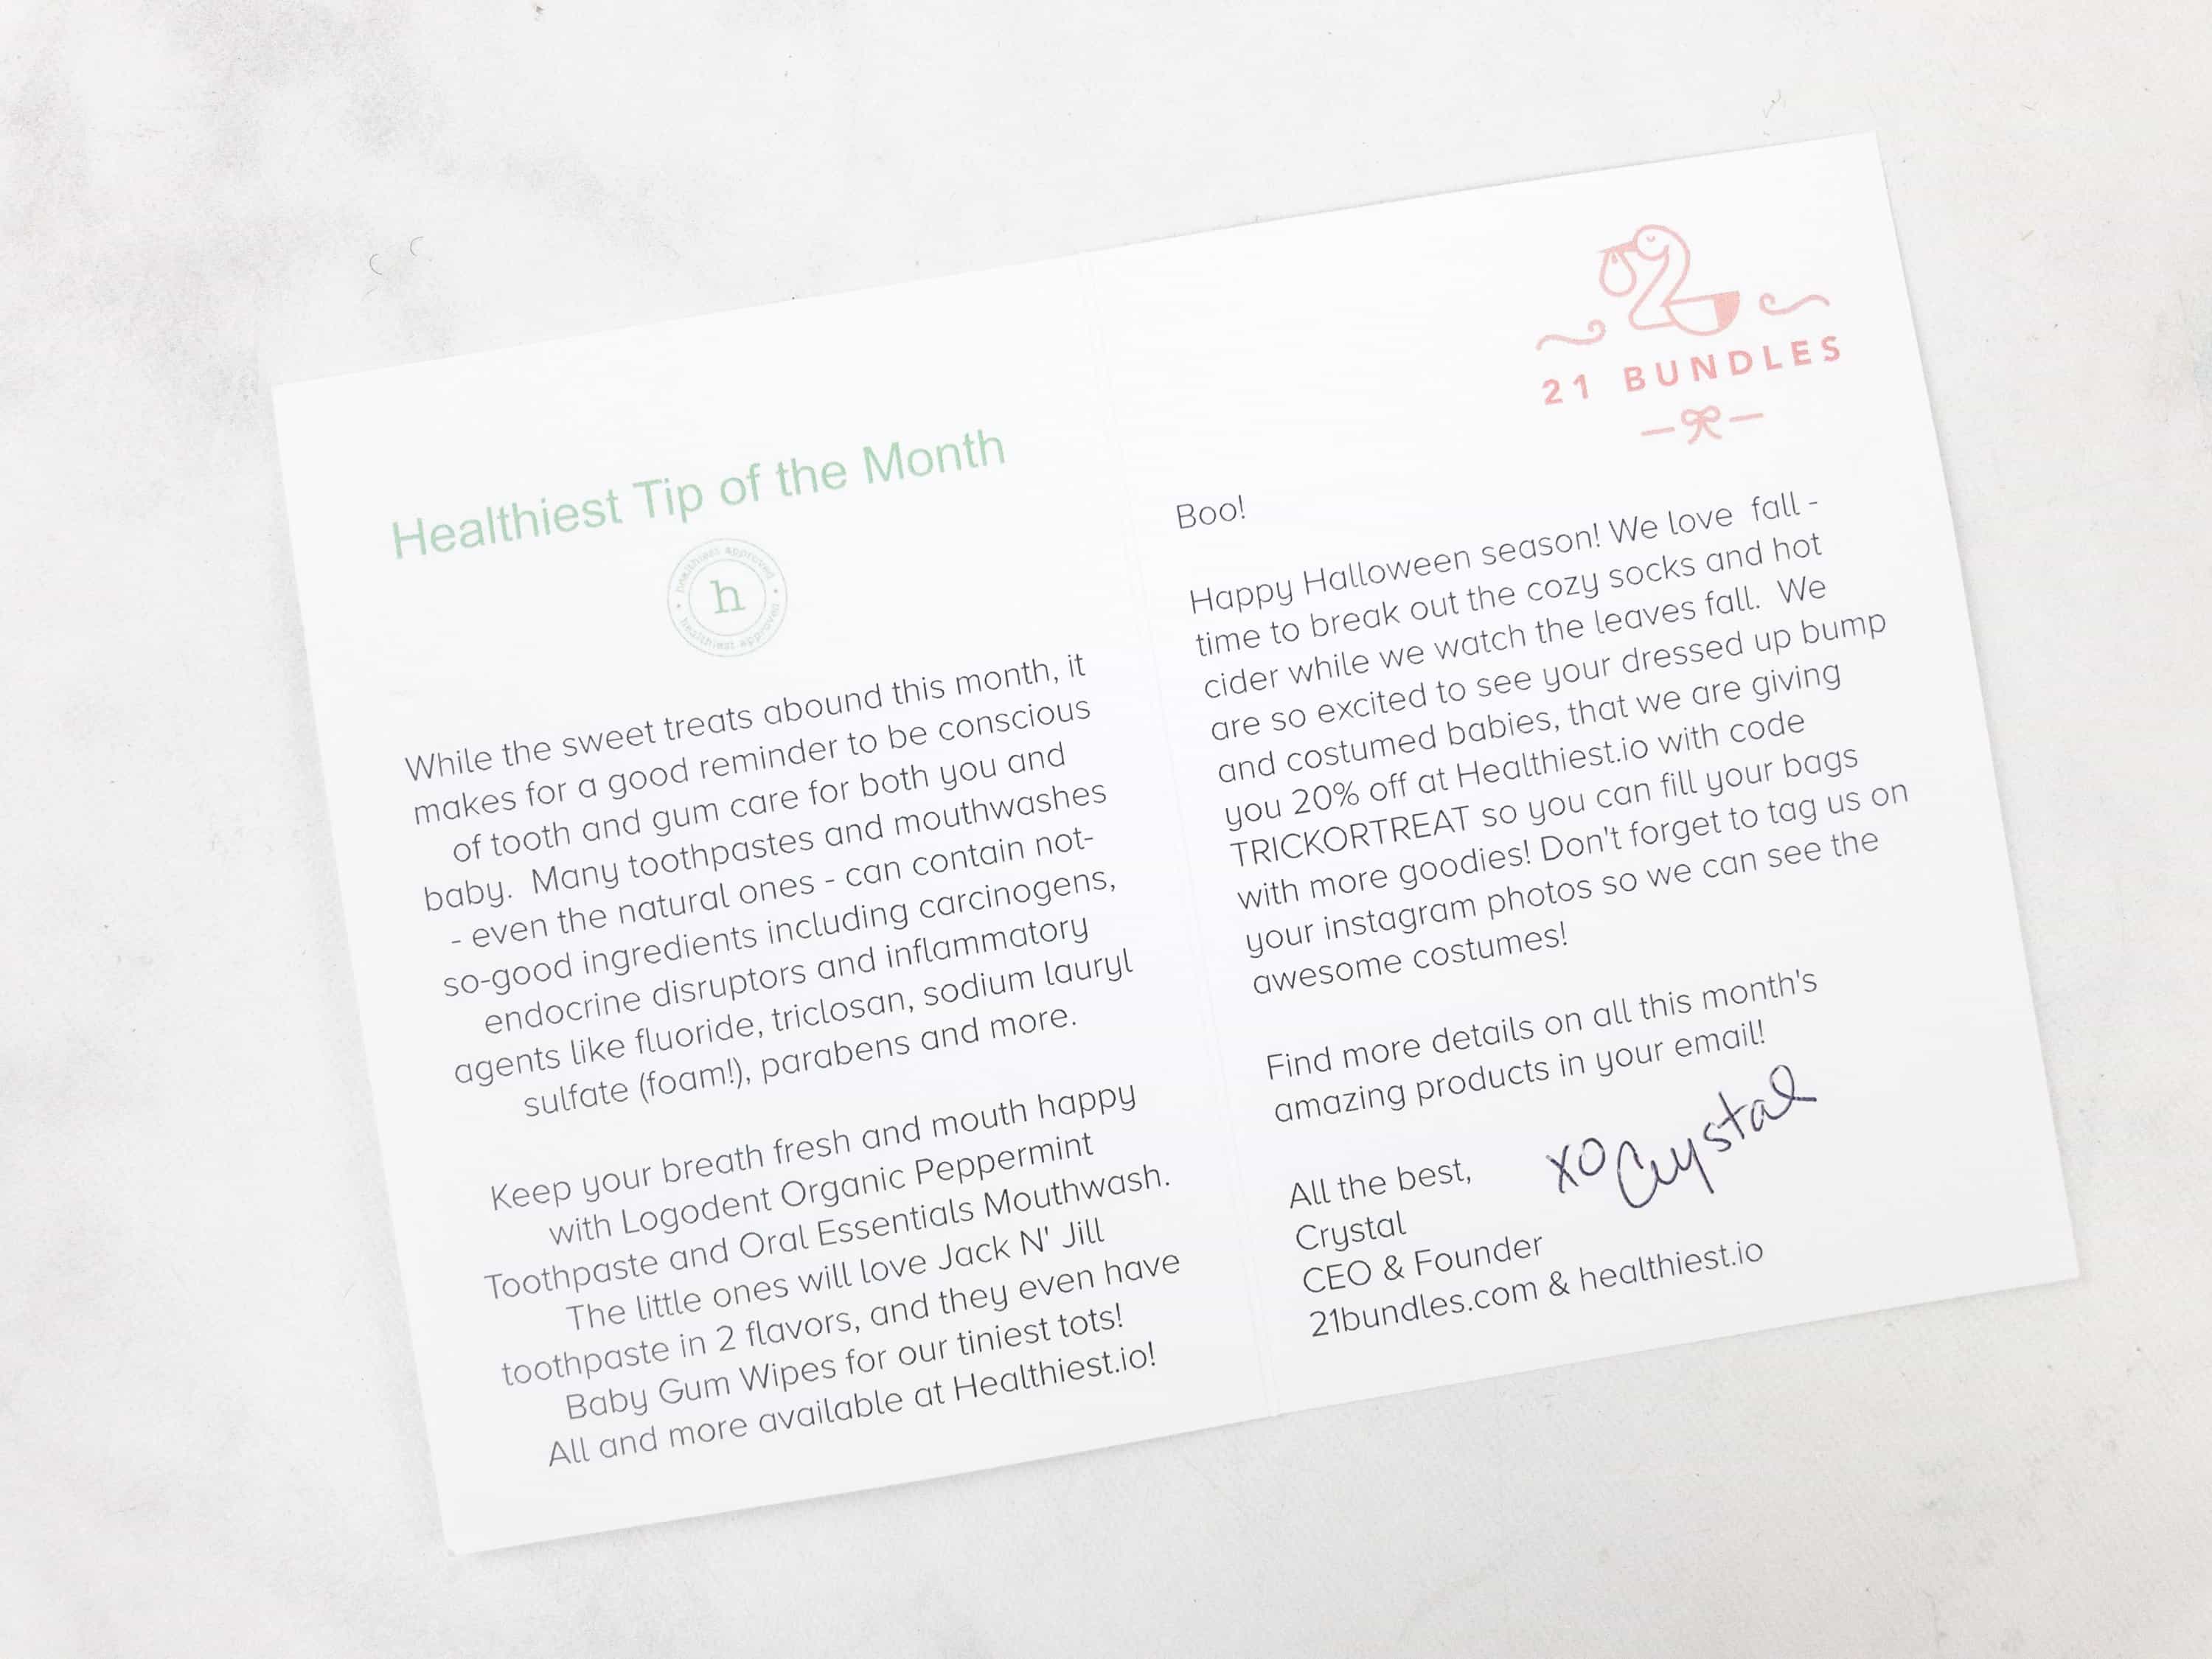 Healthiest Tip of the Month
healthiest approved
h
healthiest approved
While the sweet treats abound this month, it
makes for a good reminder to be conscious
of tooth and gum care for both you and
baby.  Many toothpastes and mouthwashes
- even the natural ones - can contain not-
so-good ingredients including carcinogens,
endocrine disruptors and inflammatory
agents like fluoride, triclosan, sodium lauryl
sulfate (foam!), parabens and more.
Keep your breath fresh and mouth happy
with Logodent Organic Peppermint
Toothpaste and Oral Essentials Mouthwash.
The little ones will love Jack N' Jill
toothpaste in 2 flavors, and they even have
Baby Gum Wipes for our tiniest tots!
All and more available at Healthiest.io!
21 BUNDLES
Boo!
Happy Halloween season! We love  fall -
time to break out the cozy socks and hot
cider while we watch the leaves fall.  We
are so excited to see your dressed up bump
and costumed babies, that we are giving
you 20% off at Healthiest.io with code
TRICKORTREAT so you can fill your bags
with more goodies! Don't forget to tag us on
your instagram photos so we can see the
awesome costumes!
Find more details on all this month's
amazing products in your email!
All the best,
xo Crystal
Crystal
CEO & Founder
21bundles.com & healthiest.io